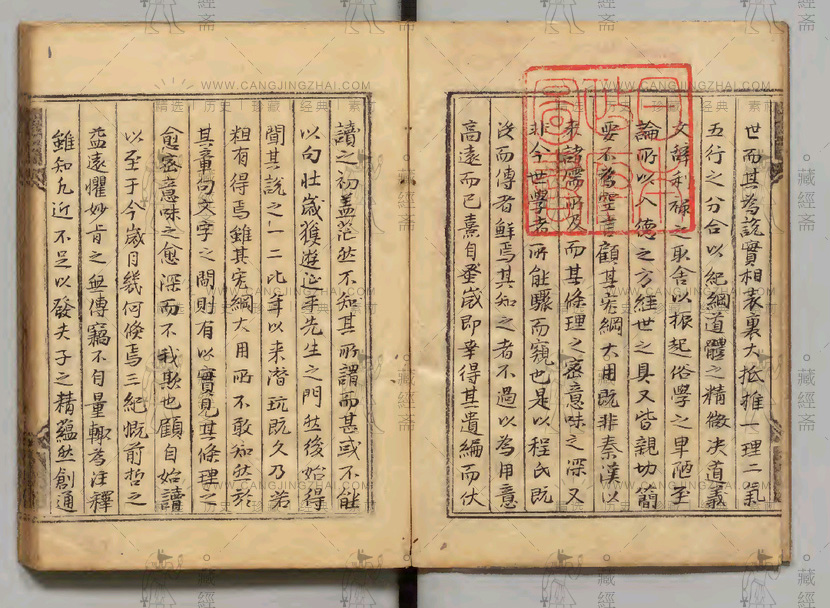 世而其為說實相表裏大抵推一理二氣
五行之分合以紀綱道體之精微决道義
文辭利祿之取舍以振起俗學之卑陋至
論所以入德之方經世之具又皆親切簡
要不為空言顧其宏綱大用既非秦漢以
來諸儒所及而其條理之密意味之深又
非今世學者所能驟而窺也是以程氏既
沒而傳者鮮焉其知之者不過以為用意
高遠而已熹自蚤歲即幸得其遺編而伏
讀之初盖茫然不知其所謂而甚或不能
以句壮歲獲遊延平先生之門然後始得
聞其說之一二比年以来潛玩既久乃若
粗有得焉雖其宏綱大用所不敢知然於
其章句文字之間則有以實見其條理之
愈密意味之愈深而不我欺也顧自始讀
以至于今歲月幾何倏焉三紀慨前哲之
益遠懼妙旨之無傳竊不自量輒為注釋
雖知凡近不足以發夫子之精蘊然創通
WWW.CANGJINGZHAI.COM
藏經斋